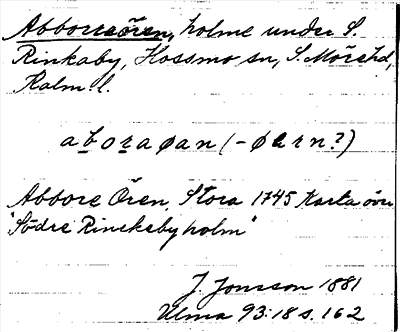 Abboreören, holme under S.
Rinkaby, Hossmo sn, S. Möre hd,
Kalm. l.
aboraøan (-øærn?)
Abbore Ören, Stora 1745 Karta över
"Södre Rinckeby holm"
J. Jonsson 1881
Ulma 93:18 s. 162